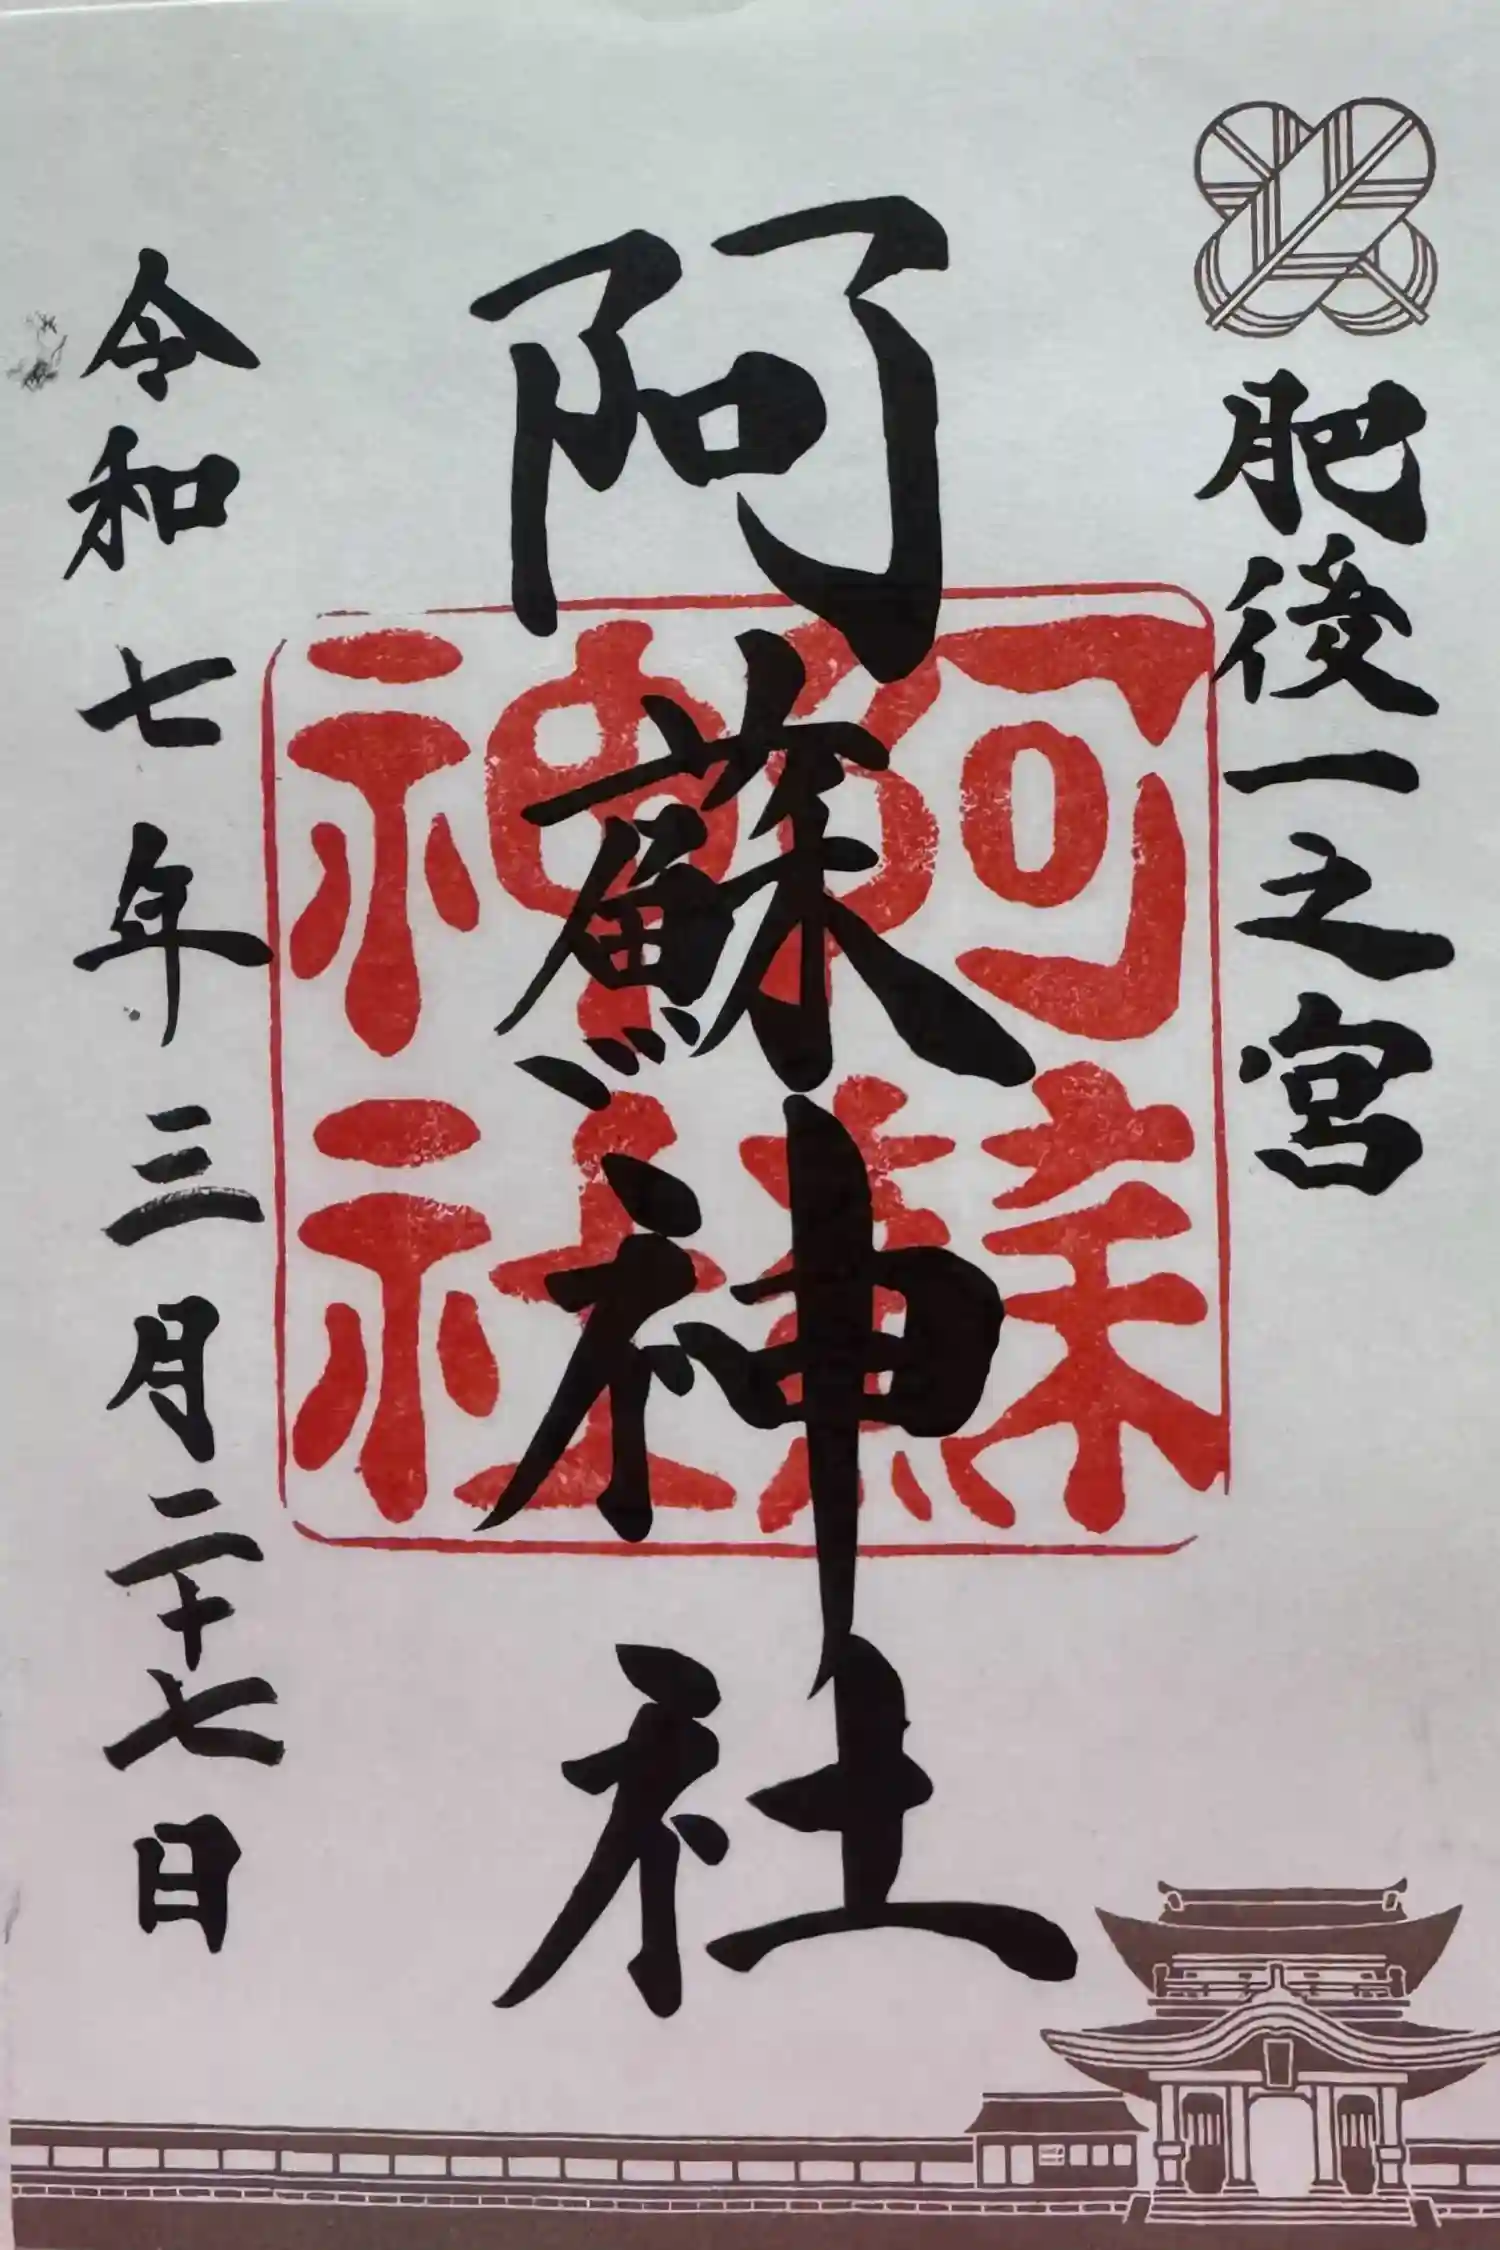 肥後一之宮
阿蘇神社
阿蘇
神社
令和七年三月二十七日